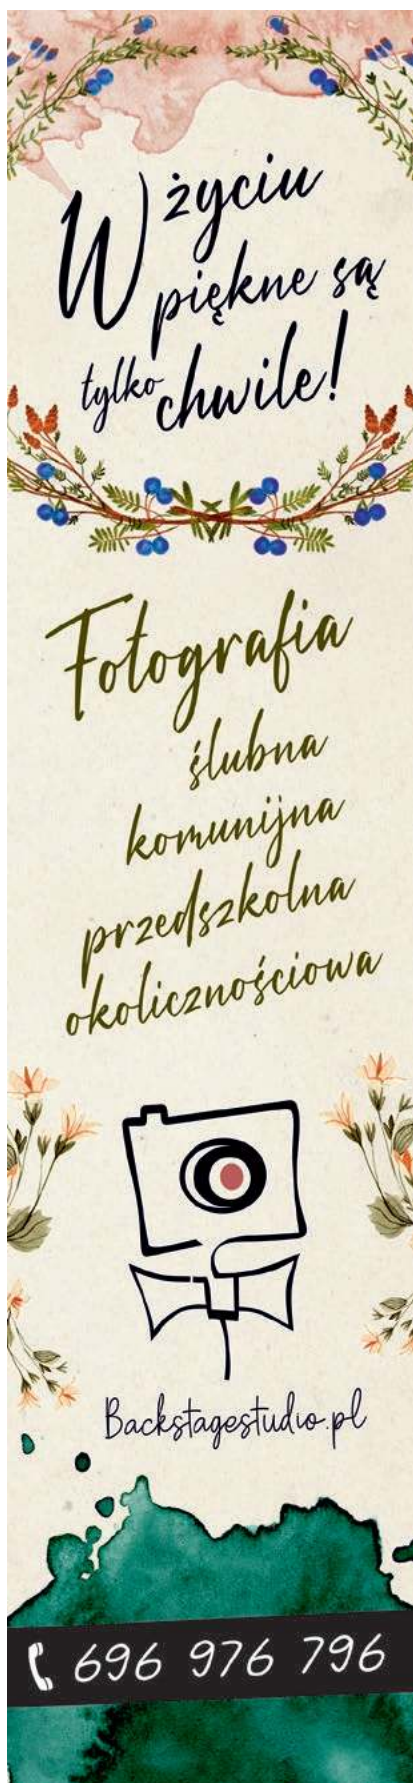 W życiu
piękne są
tylko chwile!
Fotografia
ślubna
komunijna
przedszkolna
okolicznościowa
Backstagestudio.pl
696 976 796